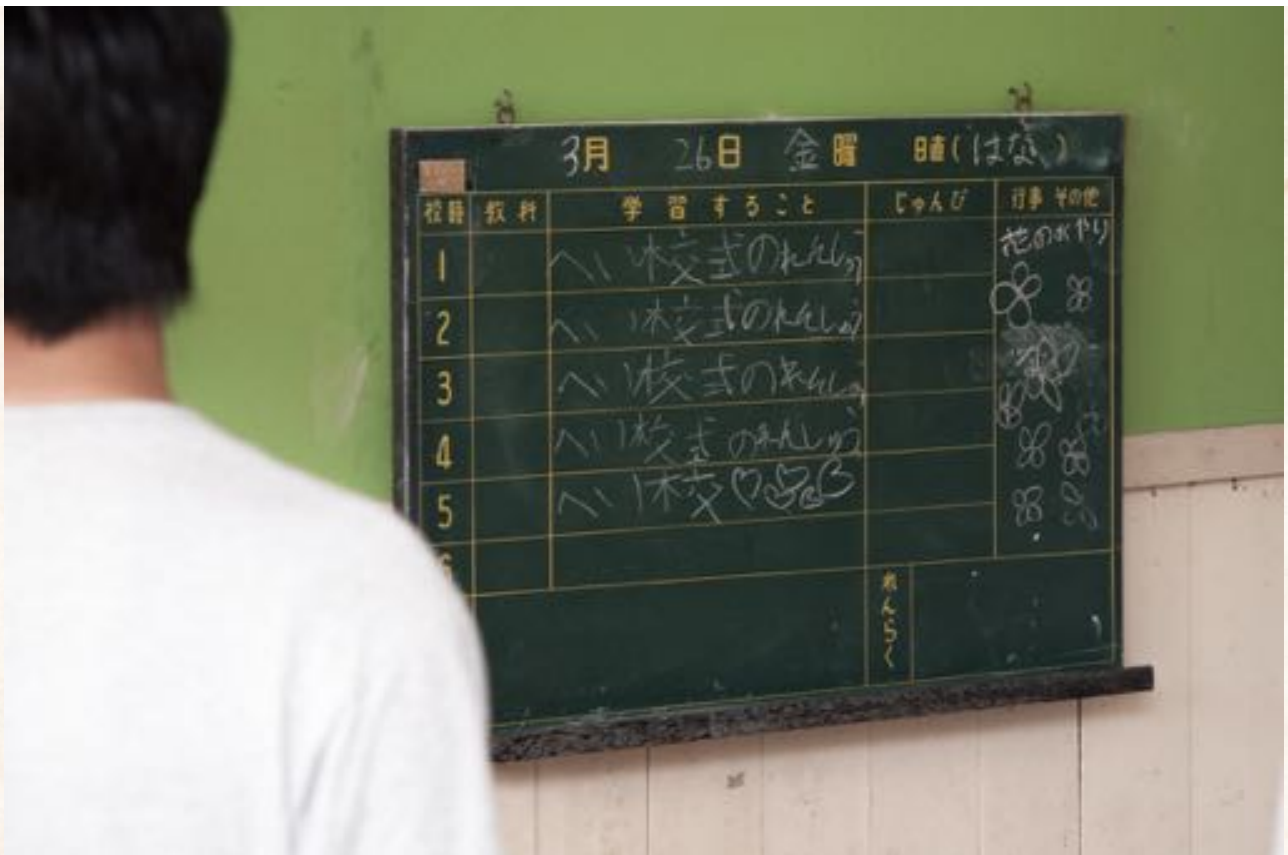 3月 26日 金曜 日直(はな)
校時 教科 学習すること じゅんび 行事 その他
1 へい校式のれんしゅう 花の水やり
2 へい校式のれんしゅう
3 へい校式のれんしゅう
4 へい校式のれんしゅう
5 へい校♡♡♡♡
れんらく